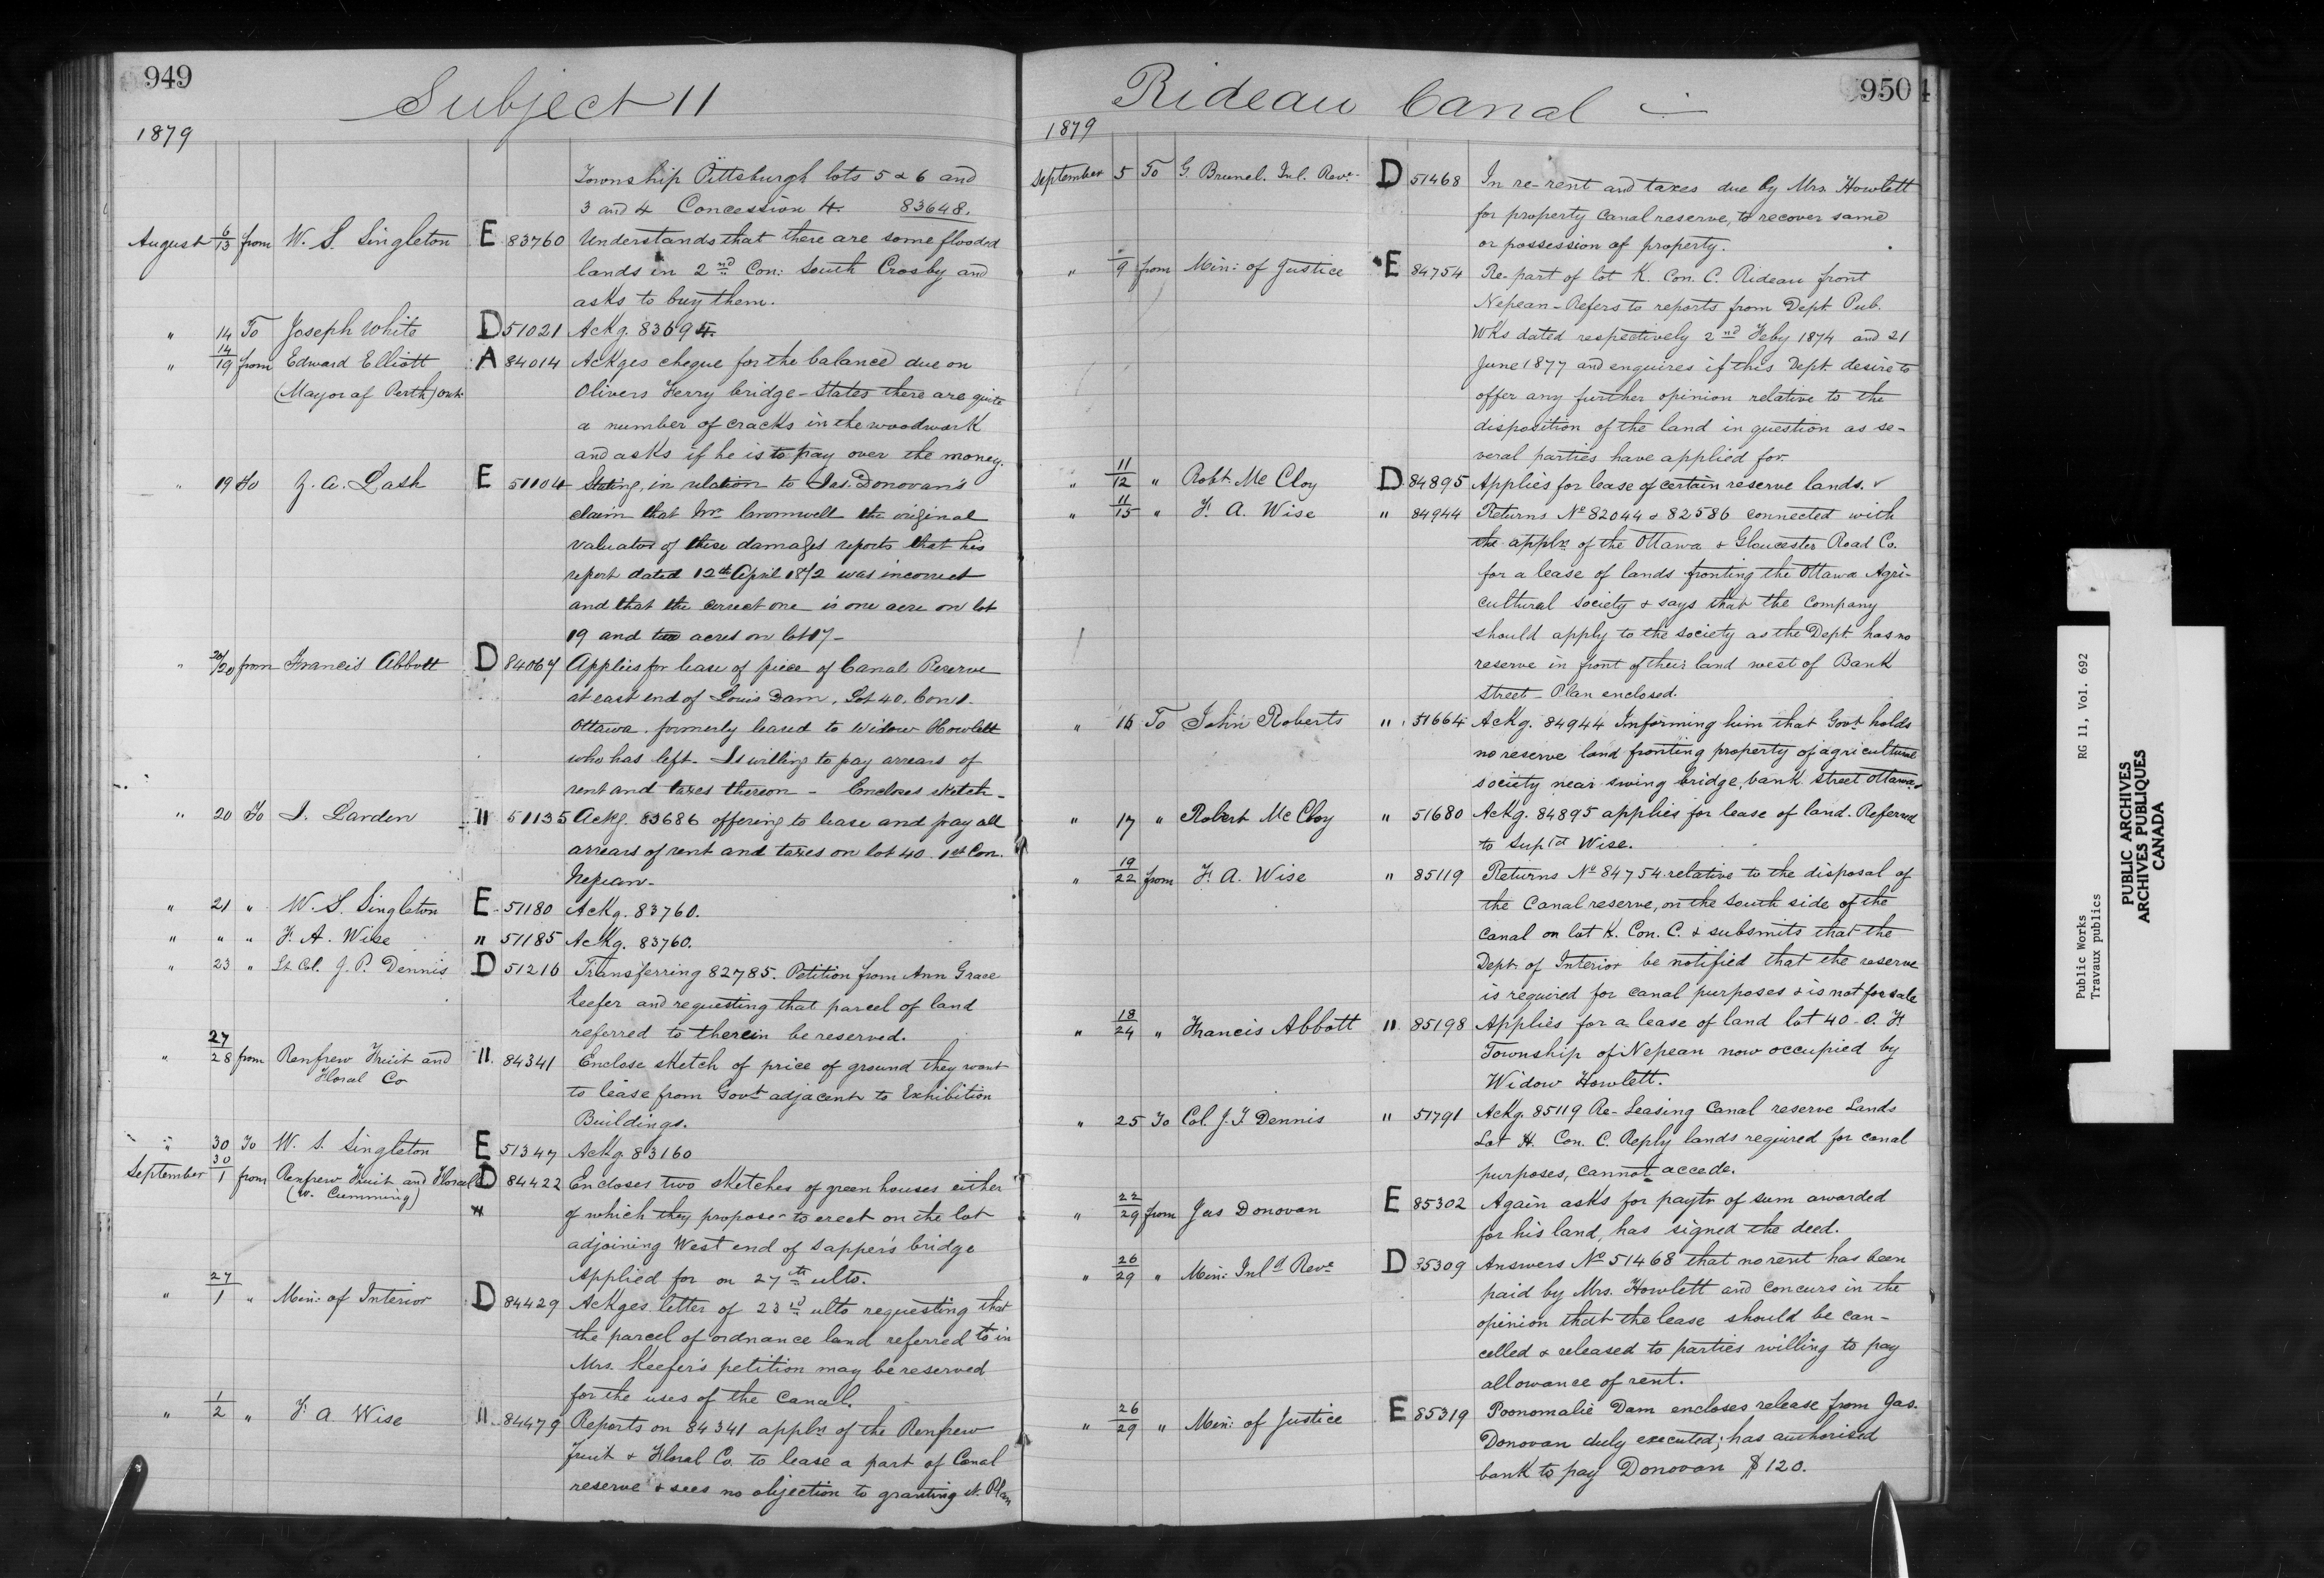 949
Subject 11
1879
Township Pittsburgh lots 5 & 6 and
3 and 4 Concession 4. 83648.
August 6/13 from W. S. Singleton E 83760 Understands that there are some flooded
lands in 2nd Con: South Crosby and
asks to buy them.
" 14 To Joseph White D 51021 Ackg. 83694.
" 14/19 from Edward Elliott A 84014 Ackges cheque for the balance due on
(Mayor of Perth) Ont. Olivers Ferry bridge - States there are quite
a number of cracks in the woodwork
and asks if he is to pay over the money.
" 19 To Z. A. Lash E 51104 Stating, in relation to Jas. Donovan's
claim that Mr Cromwell the original
valuator of these damages reports that his
report dated 12th April 1872 was incorrect
and that the correct one is one acre on lot
19 and two acres on lot 17 -
" 20/20 from Francis Abbott D 84067 Applies for lease of piece of Canal Reserve
at east end of Louis Dam, Lot 40, Con 1.
Ottawa. formerly leased to Widow Howlett
who has left. Is willing to pay arrears of
rent and taxes thereon - Encloses sketch -
" 20 To I. Larden " 51135 Ackg. 83686 offering to lease and pay all
arrears of rent and taxes on lot 40. 1st Con.
Nepean -
" 21 " W. S. Singleton E 51180 Ackg. 83760.
" " " F. A. Wise " 51185 Ackg. 83760.
" 23 " Lt. Col. J. P. Dennis D 51216 Transferring 82785. Petition from Ann Grace
Keefer and requesting that parcel of land
referred to therein be reserved.
" 27/28 from Renfrew Fruit and " 84341 Enclose sketch of price of ground they want
Floral Co to lease from Govt adjacent to Exhibition
Buildings.
" 30 To W. S. Singleton E 51347 Ackg. 83160
September 30/1 from Renfrew Fruit and Floral D 84422 Encloses two sketches of green houses either
(W. Cumming) of which they propose to erect on the lot
adjoining West end of Sapper's bridge
Applied for on 27th ulto.
" 27/1 " Min: of Interior D 84429 Ackges letter of 23rd ulto requesting that
the parcel of ordnance land referred to in
Mrs. Keefer's petition may be reserved
for the uses of the Canal.
" 1/2 " F. A. Wise " 84479 Reports on 84341 appln of the Renfrew
Fruit & Floral Co. to lease a part of Canal
reserve & sees no objection to granting it. Plan
Rideau Canal
950
1879
September 5 To G. Brunel. Inl. Reve. D 51468 In re-rent and taxes due by Mrs. Howlett
for property Canal reserve, to recover same
or possession of property.
" /9 from Min: of Justice E 84754 Re-part of lot K. Con. C. Rideau front
Nepean - Refers to reports from Dept. Pub.
Wks dated respectively 2nd Feby 1874 and 21
June 1877 and enquires if this Dept. desire to
offer any further opinion relative to the
disposition of the land in question as se-
veral parties have applied for.
" 11/12 " Robt. McCloy D 84895 Applies for lease of certain reserve lands.
" 11/15 " F. A. Wise " 84944 Returns No 82044 & 82586 connected with
the applns of the Ottawa & Gloucester Road Co.
for a lease of lands fronting the Ottawa Agri-
cultural Society & says that the Company
should apply to the society as the Dept. has no
reserve in front of their land west of Bank
Street - Plan enclosed.
" 16 To John Roberts " 51664 Ackg. 84944 Informing him that Govt holds
no reserve land fronting property of agricultural
society near swing bridge, bank street Ottawa
" 17 " Robert McCloy " 51680 Ackg. 84895 applies for lease of land. Referred
to Suptd Wise.
" 19/22 from F. A. Wise " 85119 Returns No 84754 relative to the disposal of
the Canal reserve, on the South side of the
Canal on lot K. Con. C. & submits that the
Dept. of Interior be notified that the reserve
is required for canal purposes & is not for sale
" 18/24 " Francis Abbott " 85198 Applies for a lease of land lot 40. O. F.
Township of Nepean now occupied by
Widow Howlett.
" 25 To Col. J. S. Dennis " 51791 Ackg. 85119 Re-Leasing Canal reserve Lands
Lot K. Con. C. Reply lands required for canal
purposes, cannot accede.
" 22/29 from Jas Donovan E 85302 Again asks for paytn of sum awarded
for his land, has signed the deed.
" 26/29 " Min: Inld Reve D 85309 Answers No 51468 that no rent has been
paid by Mrs. Howlett and concurs in the
opinion that the lease should be can-
celled & released to parties willing to pay
allowance of rent.
" 26/29 " Min: of Justice E 85319 Poonomalie Dam encloses release from Jas.
Donovan duly executed; has authorised
bank to pay Donovan $120.
Public Works RG 11, Vol. 692
Travaux publics
PUBLIC ARCHIVES
ARCHIVES PUBLIQUES
CANADA